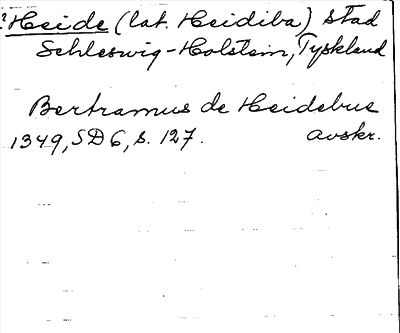 ?Heide (lat. Heidiba) stad
Schleswig-Holstein, Tyskland
Bertramus de Heidebue
1349, SD 6, s. 127. avskr.